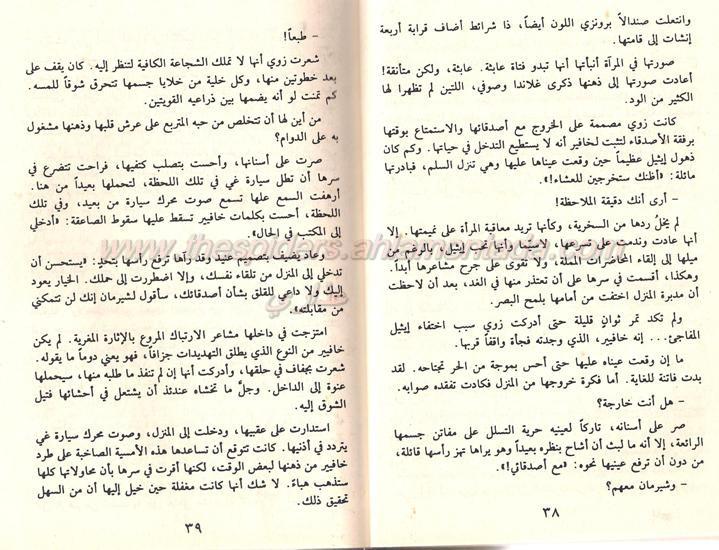 وانتعلت صندالاً برونزي اللون أيضاً، ذا شرائط أضاف قرابة أربعة
إنشات إلى قامتها.
صورتها في المرآة أنبأتها أنها تبدو فتاة عابثة. عابثة، ولكن متأنقة!
أعادت صورتها إلى ذهنها ذكرى غلاندا وصوفي، اللتين لم تظهرا لها
الكثير من الود.
كانت زوي مصممة على الخروج مع أصدقائها والاستمتاع بوقتها
برفقة الأصدقاء لتثبت لخافيير أنه لا يستطيع التدخل في حياتها. وكم كان
ذهول إيثيل عظيماً حين وقعت عيناها عليها وهي تنزل السلم، فبادرتها
قائلة: «أظنك ستخرجين للعشاء!».
- أرى أنك دقيقة الملاحظة!
لم يخلُ ردها من السخرية، وكأنها تريد معاقبة المرأة على نميمتها. إلا
أنها عادت وندمت على تسرعها. لاسيما وأنها تحب إيثيل، بالرغم من
ميلها إلى إلقاء المحاضرات المملة، ولا تقوى على جرح مشاعرها أبداً.
وهكذا، أقسمت في سرها على أن تعتذر منها في الغد، بعد أن لاحظت
أن مدبرة المنزل اختفت من أمامها بلمح البصر.
ولم تكد تمر ثوانٍ قليلة حتى أدركت زوي سبب اختفاء إيثيل
المفاجئ... إنه خافيير، الذي وجدته فجأة واقفاً قربها.
ما إن وقعت عيناه عليها حتى أحس بموجة من الحر تجتاحه. لقد
بدت فاتنة للغاية. أما فكرة خروجها من المنزل فكادت تفقده صوابه.
- هل أنت خارجة؟
صر على أسنانه، تاركاً لعينيه حرية التسلل على مفاتن جسمها
الرائعة، إلا أنه ما لبث أن أشاح بنظره بعيداً وهو يراها تهز رأسها قائلة،
من دون أن ترفع عينيها نحوه: «مع أصدقائي!».
- وشيرمان معهم؟
٣٨
- طبعاً!
شعرت زوي أنها لا تملك الشجاعة الكافية لتنظر إليه. كان يقف على
بعد خطوتين منها، وكل خلية من خلايا جسمها تتحرق شوقاً للمسه.
كم تمنت لو أنه يضمها بين ذراعيه القويتين.
من أين لها أن تتخلص من حبه المتربع على عرش قلبها وذهنها مشغول
به على الدوام؟
صرت على أسنانها، وأحست بتصلب كتفيها، فراحت تتضرع في
سرها أن تطل سيارة غي في تلك اللحظة، لتحملها بعيداً من هنا.
أرهفت السمع علها تسمع صوت محرك سيارة من بعيد، وفي تلك
اللحظة، أحست بكلمات خافيير تسقط عليها سقوط الصاعقة: «أدخلي
إلى المكتب في الحال».
وعاد يضيف بتصميم عنيد وقد رآها ترفع رأسها بتحدٍ: «يستحسن أن
تدخلي إلى المنزل من تلقاء نفسك، وإلا اضطررت إلى حملك. الخيار يعود
إليك ولا داعي للقلق بشأن أصدقائك، سأقول لشيرمان إنك لن تتمكني
من مقابلته».
امتزجت في داخلها مشاعر الارتباك المروع بالإثارة المغرية. لم يكن
خافيير من النوع الذي يطلق التهديدات جزافاً، فهو يعني دوماً ما يقوله.
شعرت بجفاف في حلقها، وأدركت أنها إن لم تنفذ ما طلبه منها، سيحملها
عنوة إلى الداخل. وجلّ ما تخشاه عندئذ أن يشتعل في أحشائها فتيل
الشوق إليه.
استدارت على عقبيها، ودخلت إلى المنزل، وصوت محرك سيارة غي
يتردد في أذنيها. كانت تتوقع أن تساعدها هذه الأمسية الصاخبة على طرد
خافيير من ذهنها لبعض الوقت، لكنها أقرت في سرها بأن محاولاتها كلها
ستذهب هباءً. لا شك أنها كانت مغفلة حين خيل إليها أن من السهل
تحقيق ذلك.
٣٩